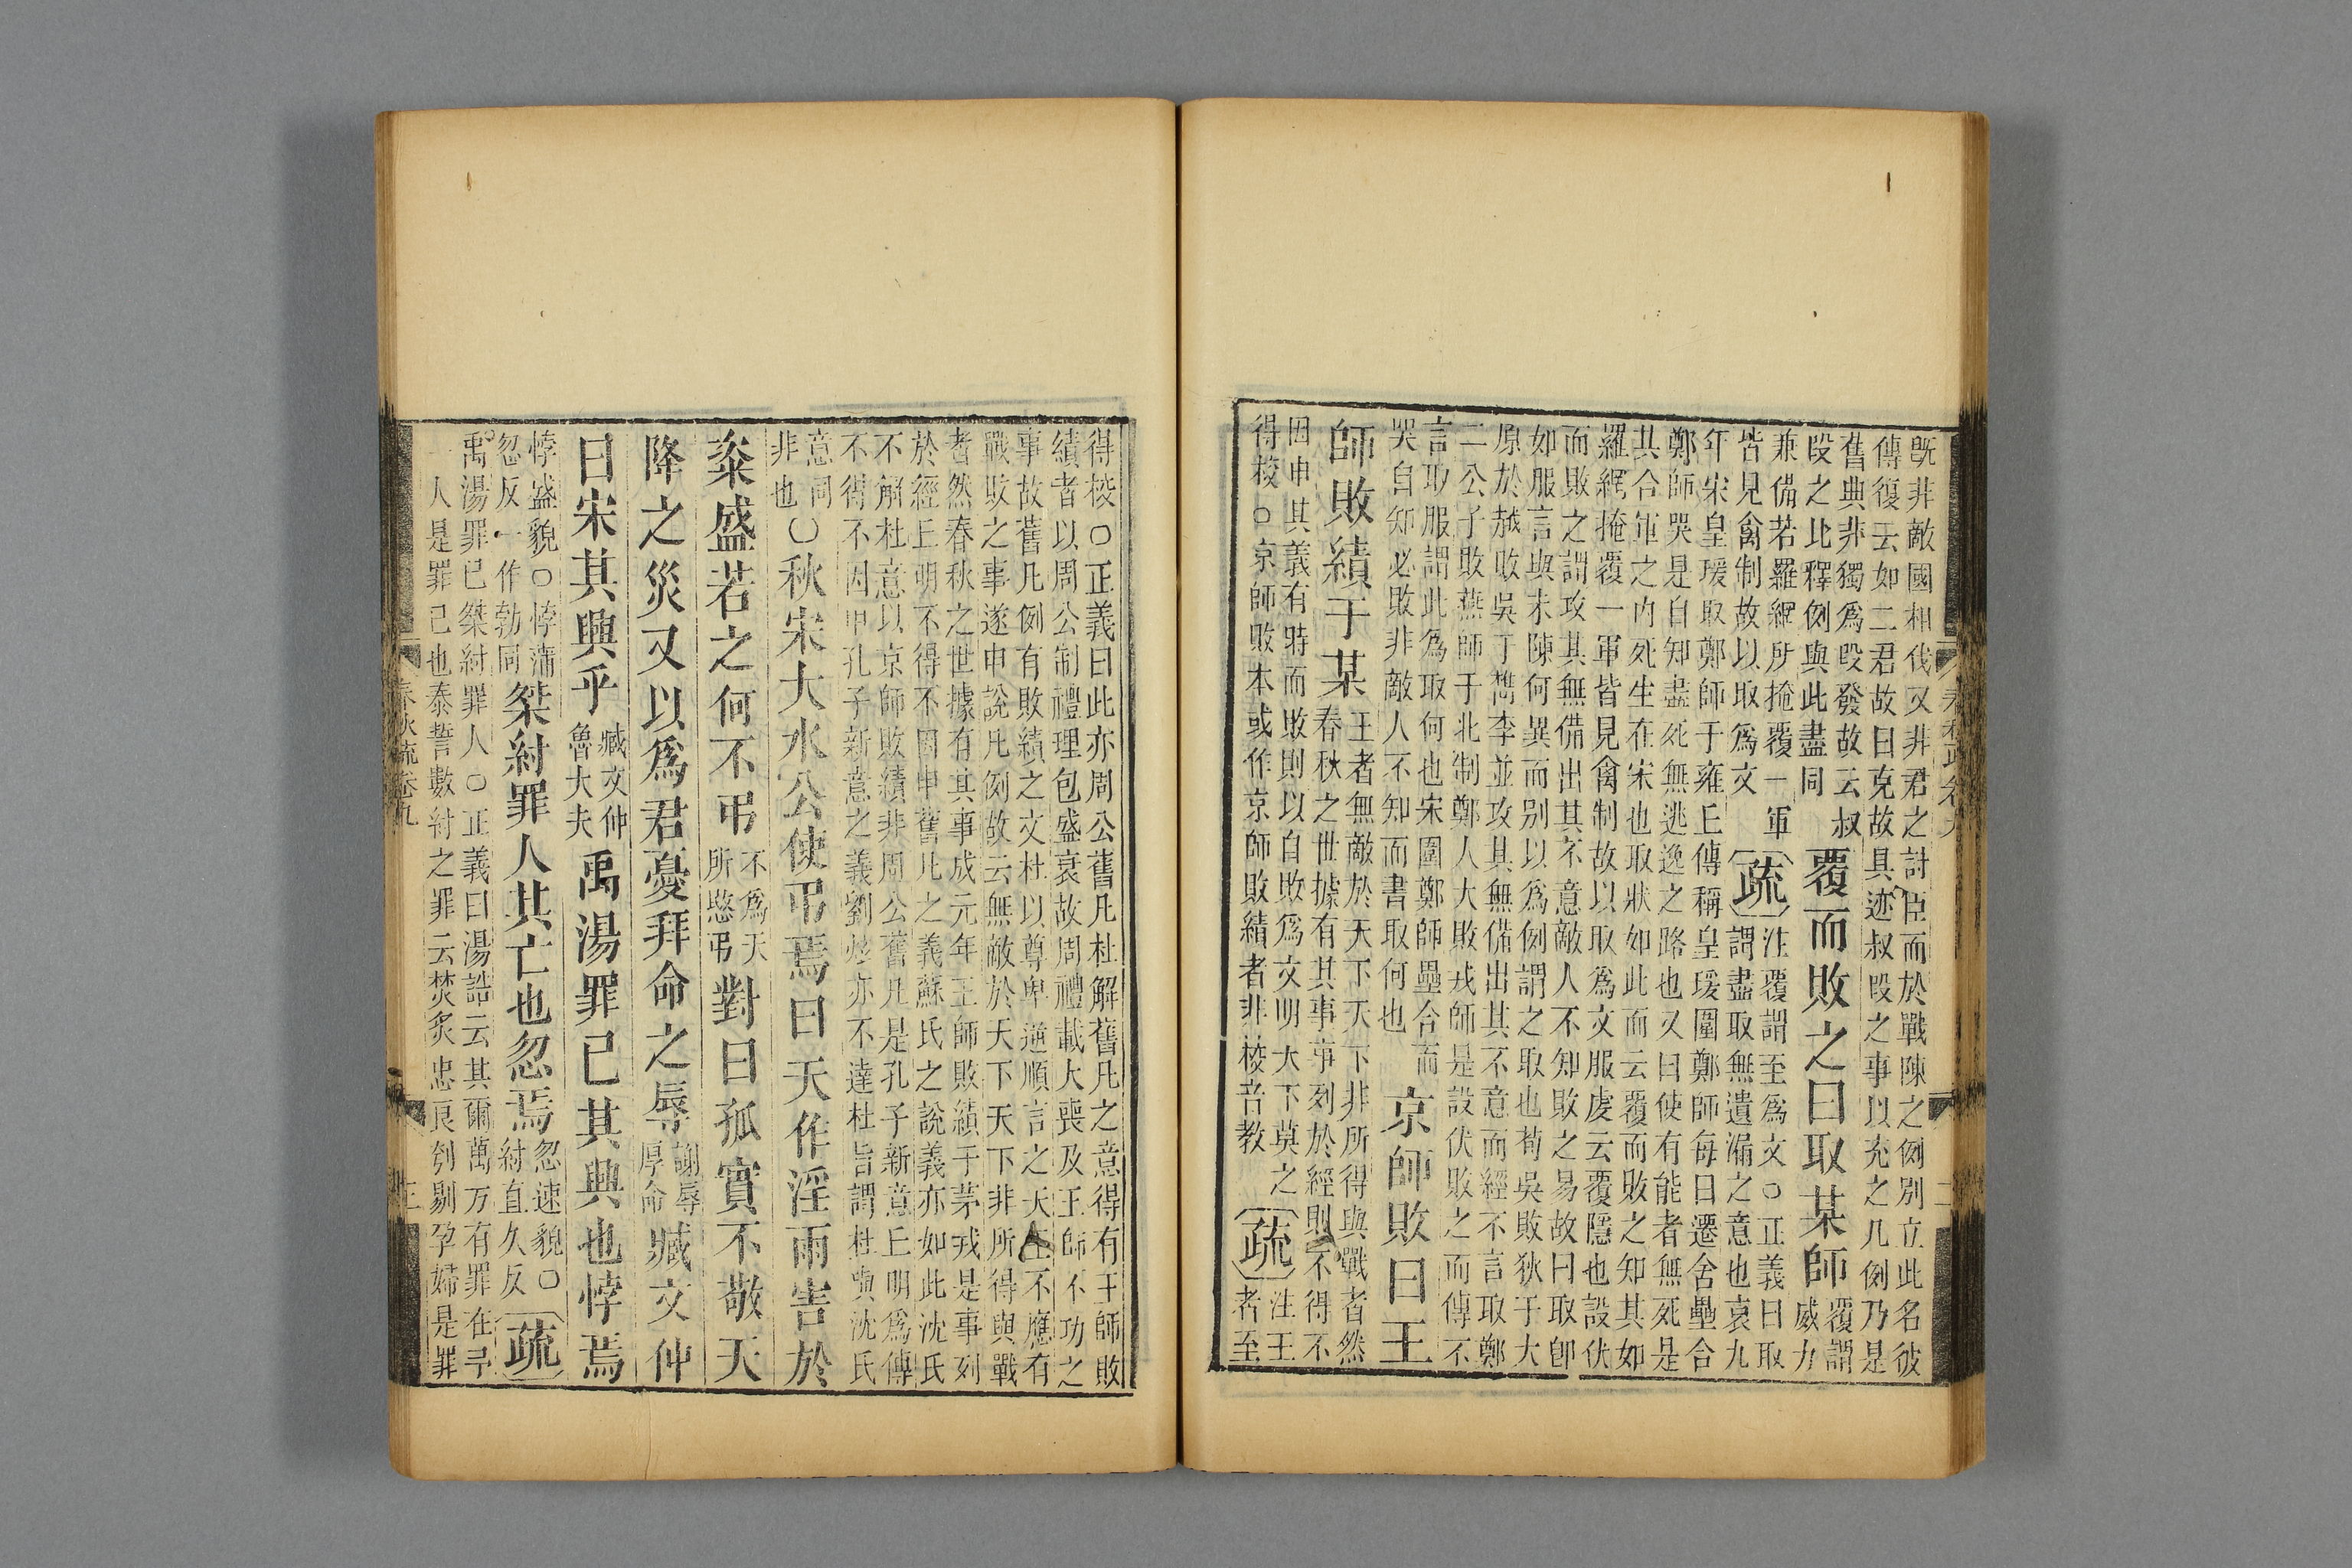 既非敵國相伐又非君之討臣而於戰陳之例別立此名彼
傳復云如二君故曰克故具迹叔段之事以充之凡例乃是
舊典非獨爲段發故云叔
段之比釋例與此盡同
覆而敗之曰取某師
覆謂
威力
兼備若羅網所掩覆一軍
皆見禽制故以取爲文
疏
注覆謂至爲文○正義曰取
謂盡取無遺漏之意也哀九
年宋皇瑗取鄭師于雍丘傳稱皇瑗圍鄭師每日遷舍壘合
鄭師哭是自知盡死無逃逸之路也又曰使有能者無死是
其合軍之内死生在宋也取狀如此而云覆而敗之知其如
羅網掩覆一軍皆見禽制故以取爲文服虔云覆隱也設伏
而敗之謂攻其無備出其不意敵人不知敗之易故曰取卽
如服言與未陳何異而别以爲例謂之取也荀吳敗狄于大
原於越敗吳于檇李並攻其無備出其不意而經不言取鄭
二公子敗燕師于北制鄭人大敗戎師是設伏敗之而傳不
言取服謂此爲取何也宋圍鄭師壘合而
哭自知必敗非敵人不知而書取何也
京師敗曰王
師敗績于某
王者無敵於天下天下非所得與戰者然
春秋之世據有其事事列於經則不得不
因申其義有時而敗則以自敗爲文明天下莫之
得校○京師敗本或作京師敗績者非校音教
疏
注王
者至
得校○正義曰此亦周公舊凡杜解舊凡之意得有王師敗
績者以周公制禮理包盛衰故周禮載大喪及王師不功之
事故舊凡例有敗績之文杜以尊卑逆順言之天王不應有
戰敗之事遂申說凡例故云無敵於天下天下非所得與戰
者然春秋之世據有其事成元年王師敗績于茅戎是事列
於經丘明不得不因申舊凡之義蘇氏之說義亦如此沈氏
不解杜意以京師敗績非周公舊凡是孔子新意丘明爲傳
不得不因申孔子新意之義劉炫亦不達杜旨謂杜與沈氏
意同
非也
○秋宋大水公使弔焉曰天作淫雨害於
粢盛若之何不弔
不爲天
所愍弔
對曰孤實不敬天
降之災又以爲君憂拜命之辱
謝辱
厚命
臧文仲
曰宋其興乎
臧文仲
魯大夫
禹湯罪己其興也悖焉
悖盛貌○悖蒲
忽反一作勃同
桀紂罪人其亡也忽焉
忽速貌○
紂直久反
疏
禹湯罪己桀紂罪人○正義曰湯誥云其爾萬方有罪在予
一人是罪己也泰誓數紂之罪云焚炙忠良刳剔孕婦是罪
春秋疏卷九
三